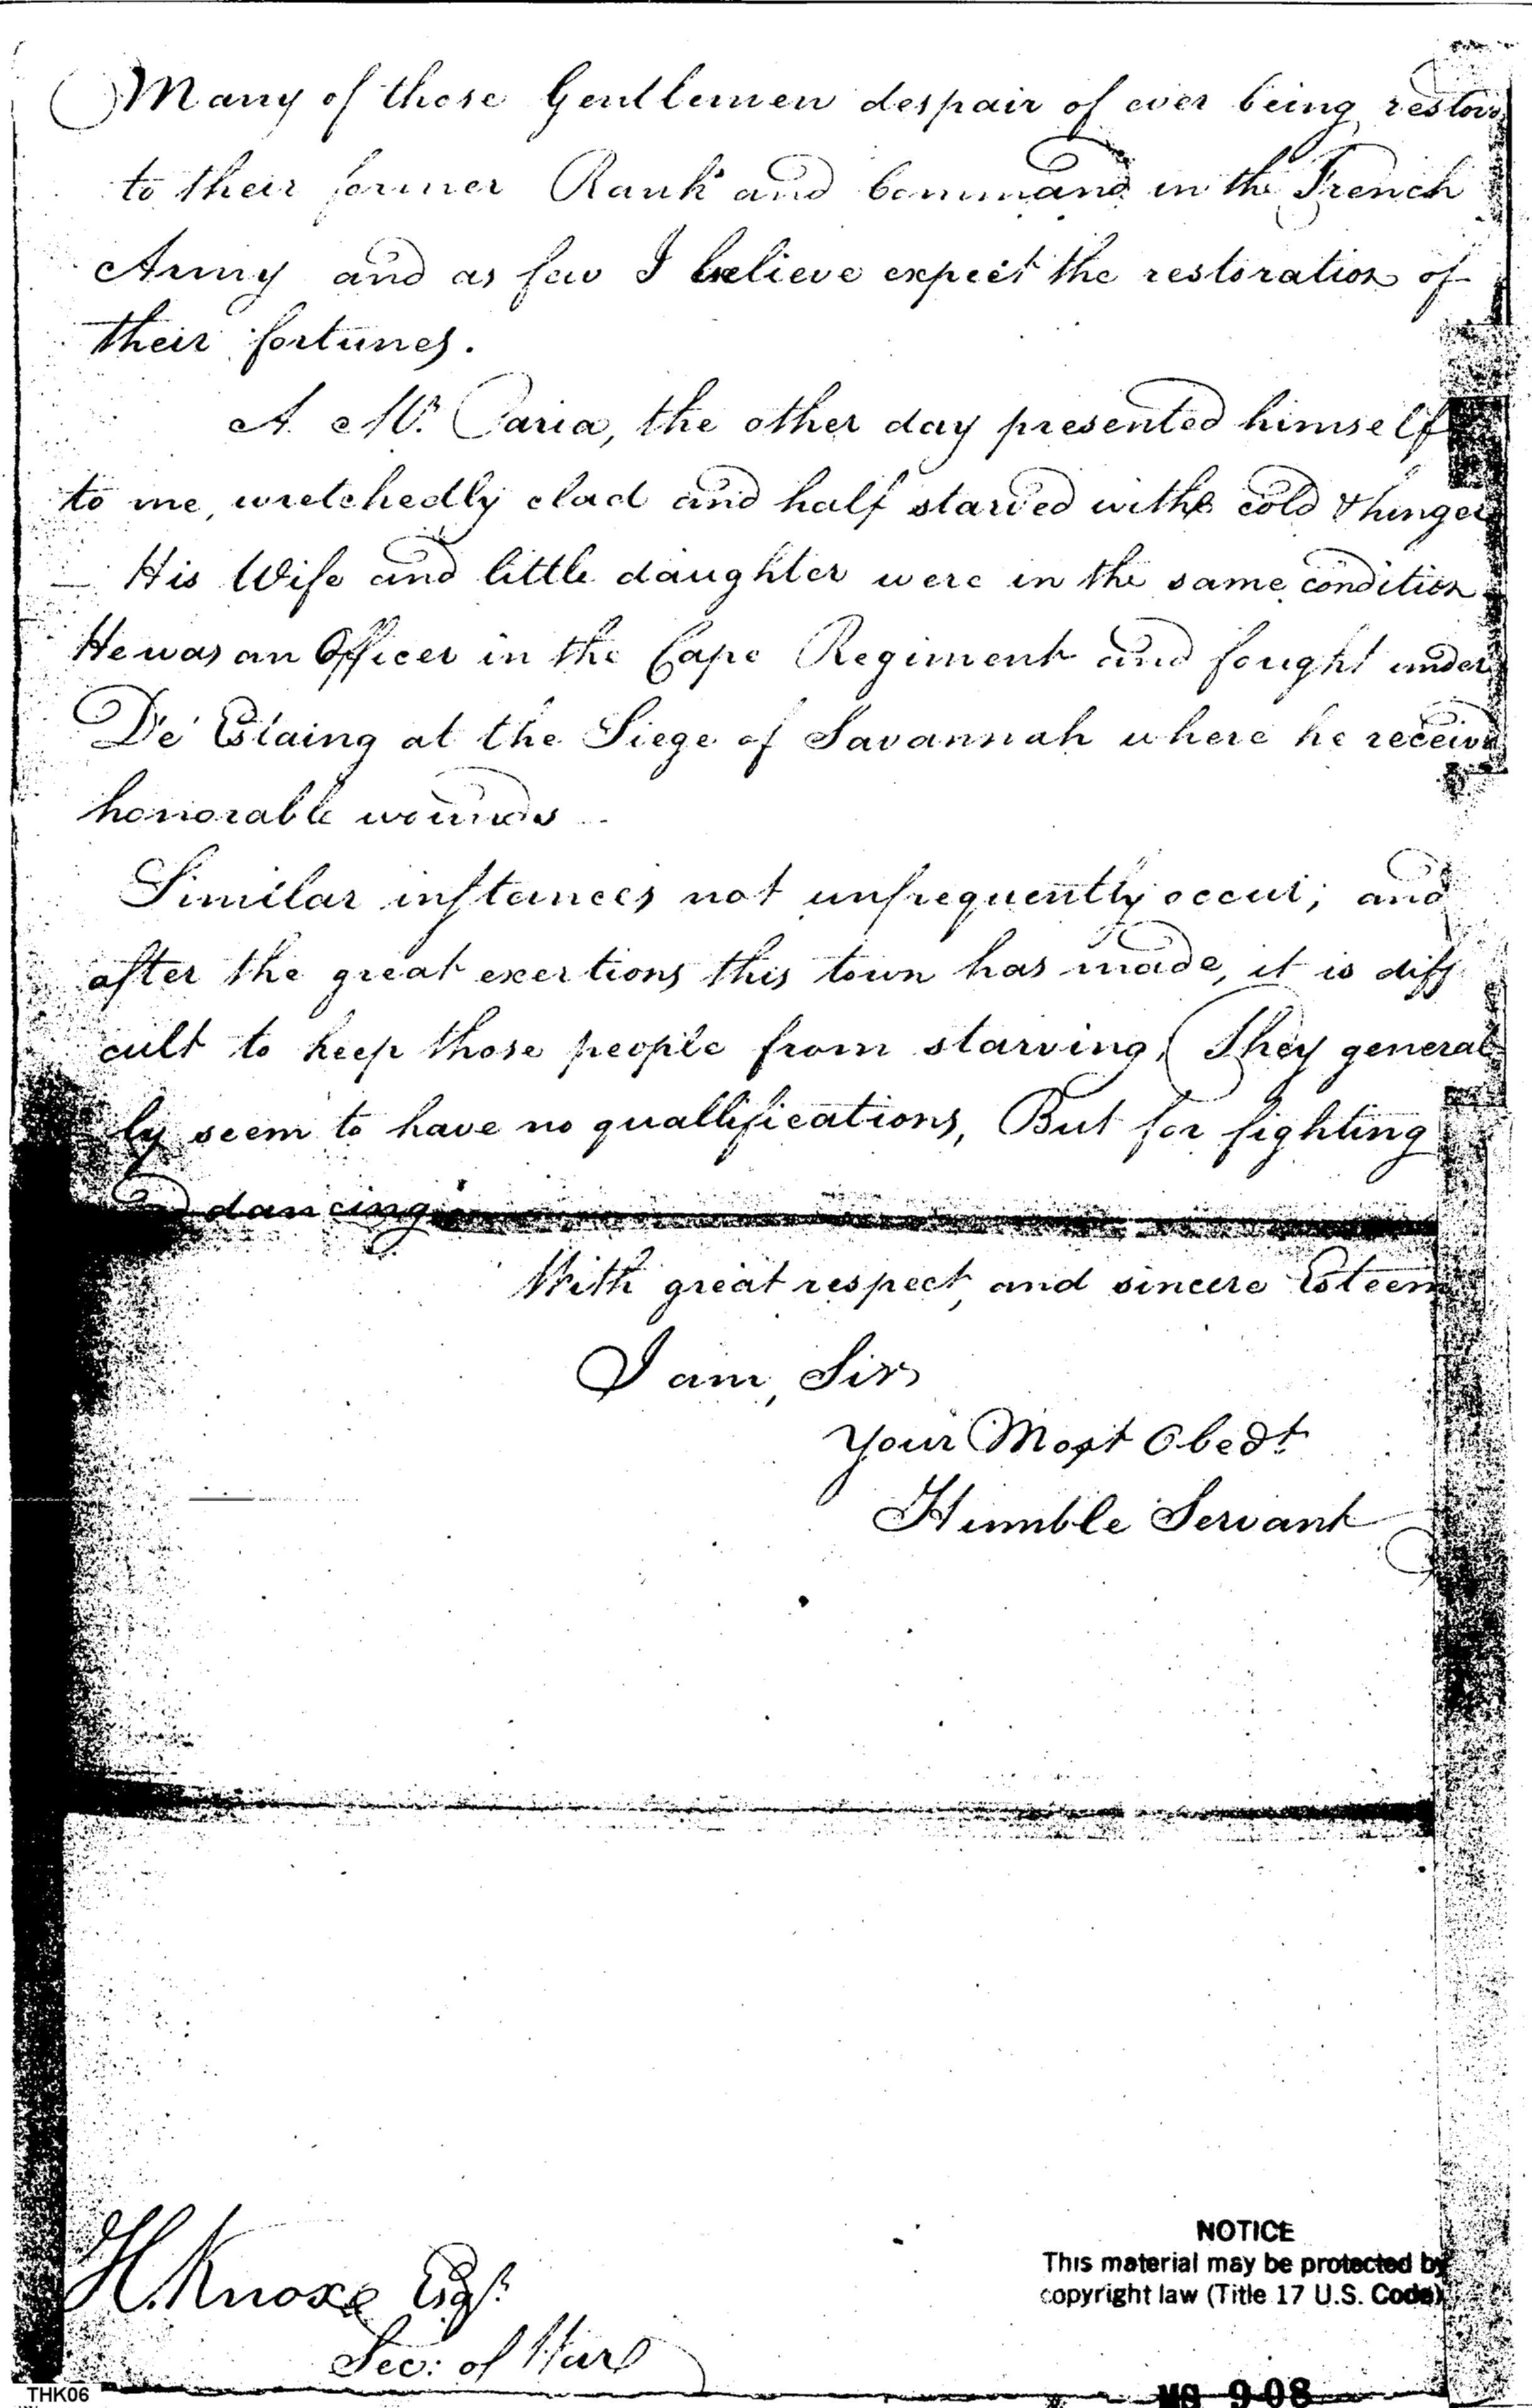 Many of these Gentlemen despair of ever being restord
to their former Rank and Command in the French
Army and as few I believe expect the restoration of
their fortunes.
A Mr. Paria, the other day presented himself
to me, wretchedly clad and half starved with cold & hunger
His Wife and little daughter were in the same condition
He was an Officer in the Cape Regiment and fought under
De' Estaing at the Siege of Savannah where he receivd
honorable wounds
Similar instances not unfrequently occur; and
after the great exertions this town has made, it is diffi
cult to keep those people from starving. They general
ly seem to have no quallifications, But for fighting
and dancing
With great respect, and sincere Esteem
I am, Sir,
Your Most Obedt.
Humble Servant
H. Knox Esqr.
Sec: of War
NOTICE
This material may be protected by
copyright law (Title 17 U.S. Code)
THK06
MG 908